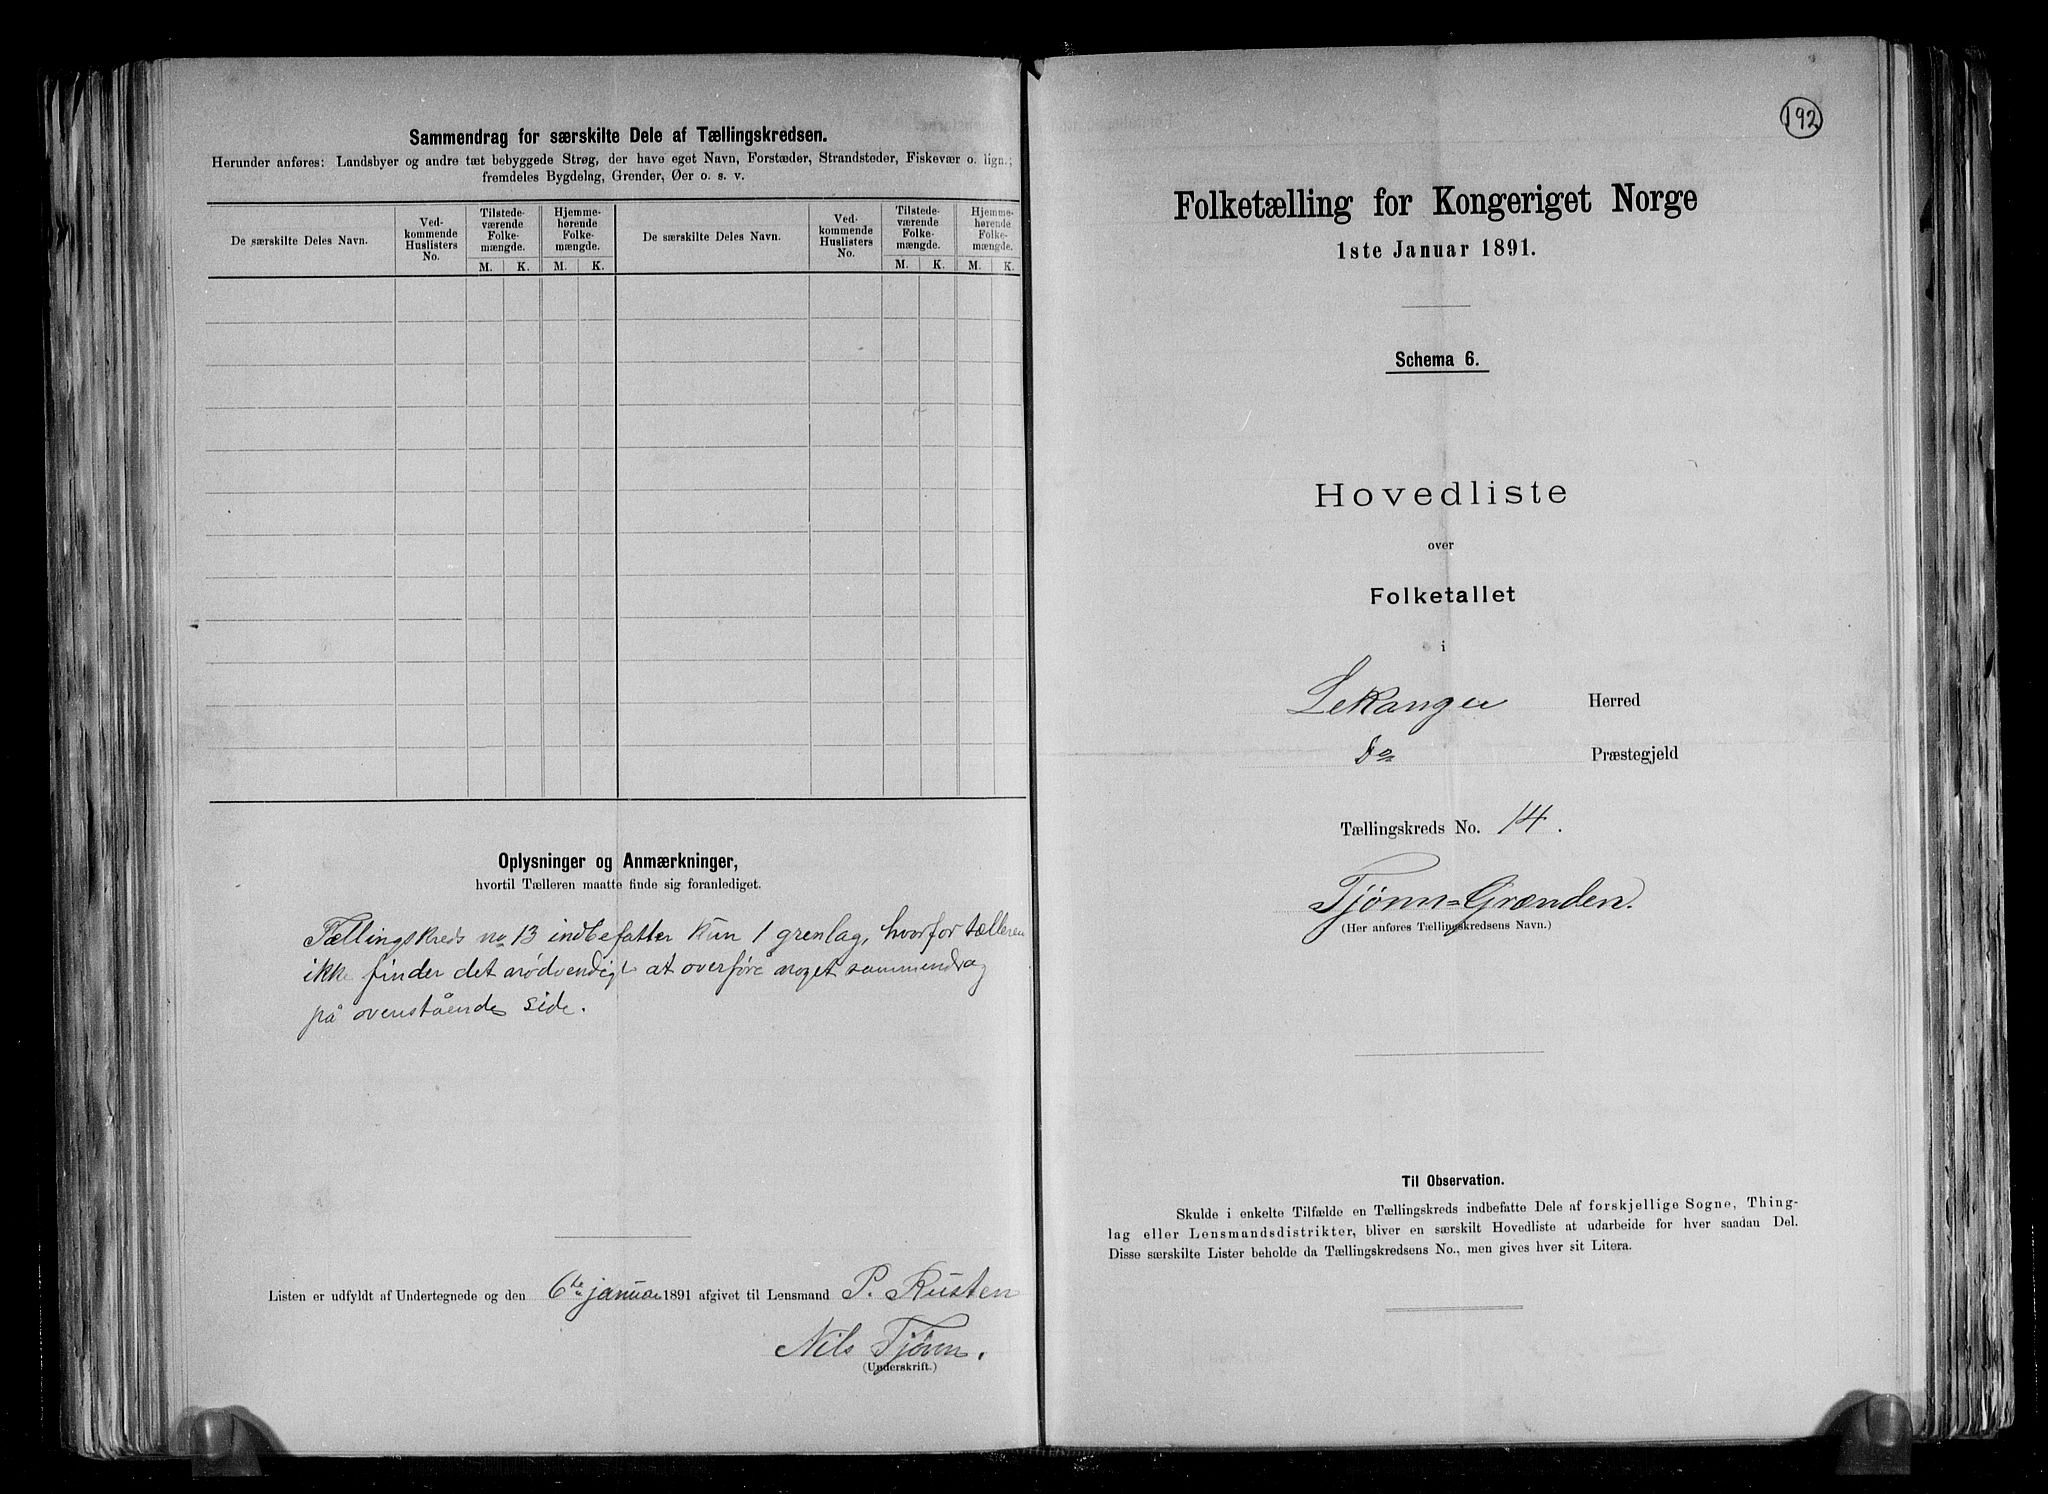 Sammendrag for særskilte Dele af Tællingskredsen.
Herunder anføres: Landsbyer og andre tæt bebyggede Strøg, der have eget Navn, Forstæder, Strandsteder, Fiskevær o. lign.;
fremdeles Bygdelag, Grender, Øer o. s. v.
De særskilte Deles Navn.
Ved-
kommende
Huslisters
No.
Tilstede-
værende
Folke-
mængde.
Hjemme-
hørende
Folke-
mængde.
M. K. M. K.
De særskilte Deles Navn.
Ved-
kommende
Huslisters
No.
Tilstede-
værende
Folke-
mængde.
Hjemme-
hørende
Folke-
mængde.
M. K. M. K.
Oplysninger og Anmærkninger,
hvortil Tælleren maatte finde sig foranlediget.
Tællingskreds no 13 indbefatter kun 1 grenlag, hvorfor tælleren
ikke finder det nødvendigt at overføre noget sammendrag
på ovenstående side.
Listen er udfyldt af Undertegnede og den 6te januar 1891 afgivet til Lensmand P. Rusten
Nils Tjønn.
(Underskrift.)
192
Folketælling for Kongeriget Norge
1ste Januar 1891.
Schema 6.
Hovedliste
over
Folketallet
i
Lekanger Herred
do Præstegjeld
Tællingskreds No. 14.
Tjønn=Grænden.
(Her anføres Tællingskredsens Navn.)
Til Observation.
Skulde i enkelte Tilfælde en Tællingskreds indbefatte Dele af forskjellige Sogne, Thing-
lag eller Lensmandsdistrikter, bliver en særskilt Hovedliste at udarbeide for hver saadan Del.
Disse særskilte Lister beholde da Tællingskredsens No., men gives hver sit Litera.